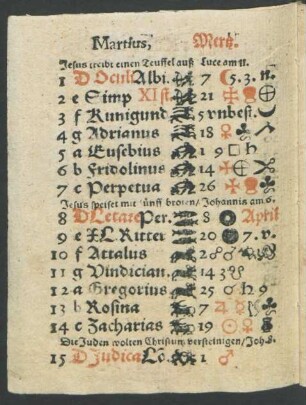 Martius, Mertz.
Jesus treibt einen Teuffel auß Luce am 11.
1 D Oculi Albi. 7 ☾ 5. 3. n.
2 e Simp XI st 21
3 f Kunigund 5 vnbest.
4 g Adrianus 18 ♀
5 a Eusebius 1 9 □ ♄
6 b Fridolinus 14
7 c Perpetua 26
Jesus speiset mit fünff broten/ Johannis am 6.
8 D Letare Per. 8 April
9 e XL Ritter 20 7. v.
10 f Attalus 2
11 g Vindician. 14
12 a Gregorius 25 ♂ ♄ 9
13 b Rosina 7
14 c Zacharias 19 ☉ ♀
Die Juden wolten Christum versteinigen/ Joh. 8.
15 D Judica Lō. 1 ♂